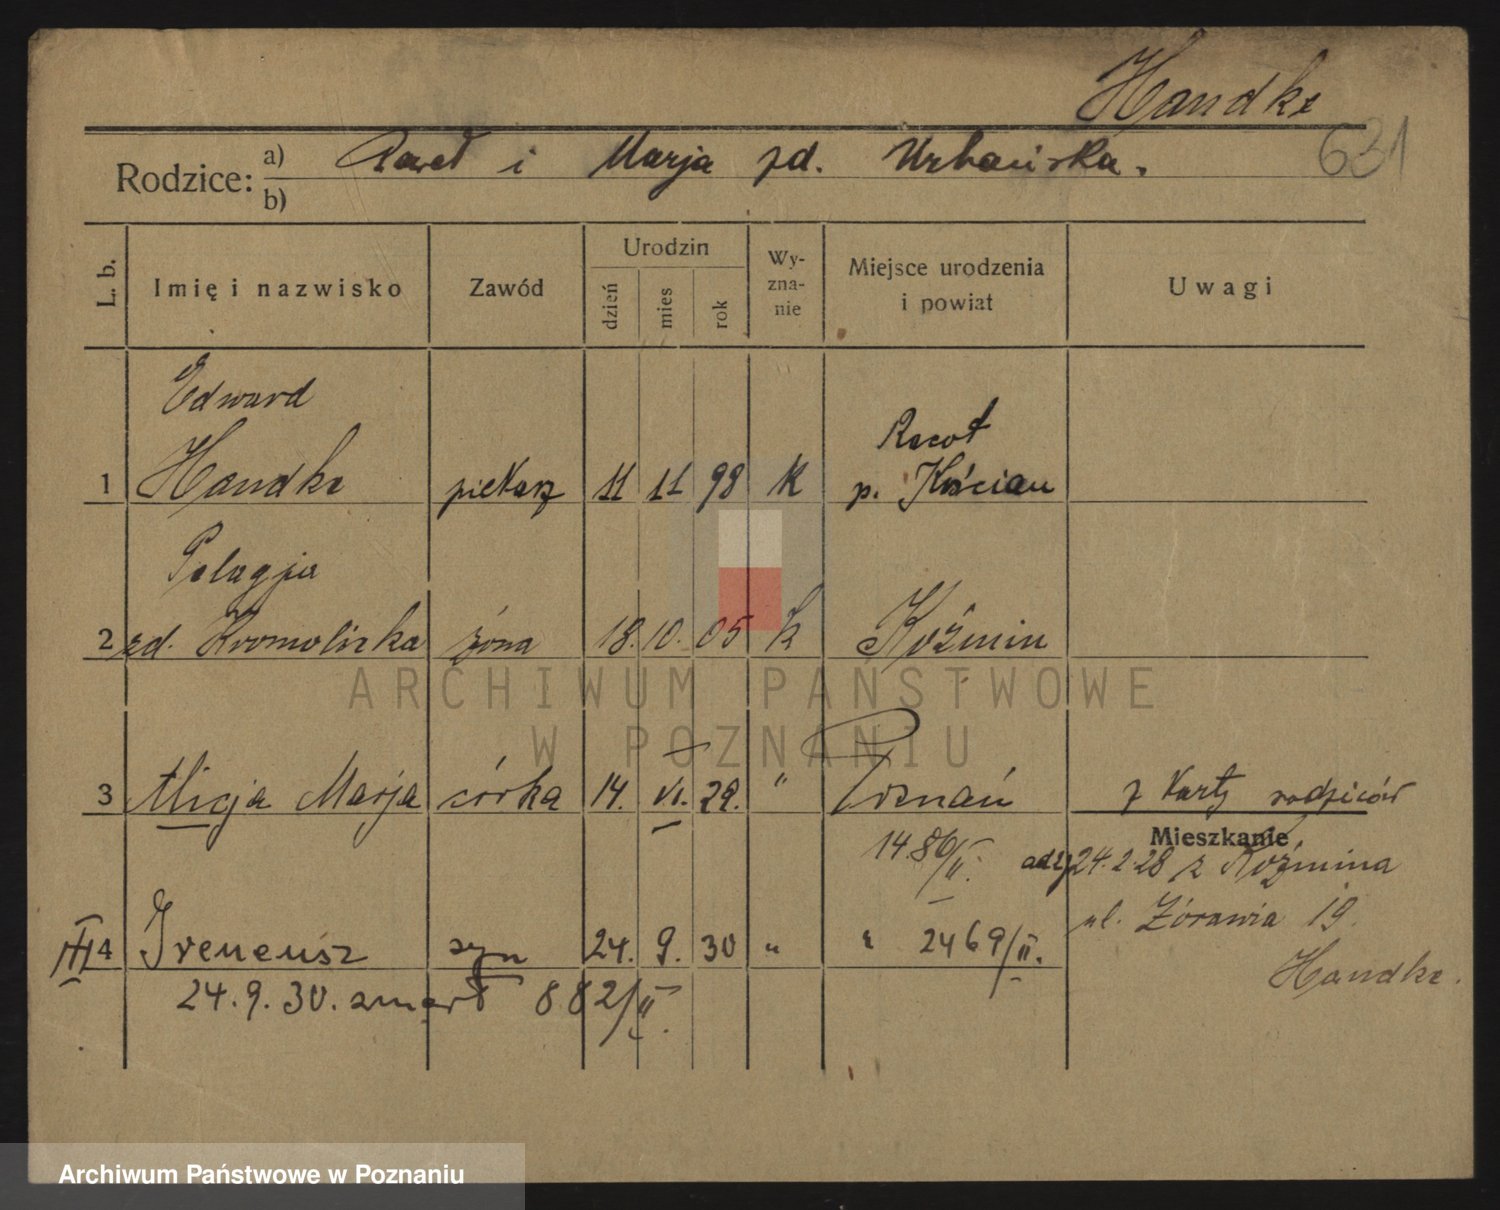 Handke
631
Rodzice: a) Paweł i Marja zd. Urbańska.
b)
L. b. Imię i nazwisko Zawód Urodzin dzień mies rok Wy-zna-nie Miejsce urodzenia i powiat Uwagi
Edward
Racot
1 Handke piekarz 11 11 98 K p. Kościan
Pelagja
2 zd. Kromoliska żona 18. 10. 05 k Koźmin
ARCHIWUM PAŃSTWOWE
W POZNANIU
3 Alicja Marja córka 14. VI. 29. " Poznań z karty rodziców
Mieszkanie
1486/II. 24.2.28 z Koźmina
ul. Żórawia 19.
III 4 Ireneusz syn 24. 9. 30 " " 2469/II.
Handke.
24.9.30. zmarł 882/II.
Archiwum Państwowe w Poznaniu